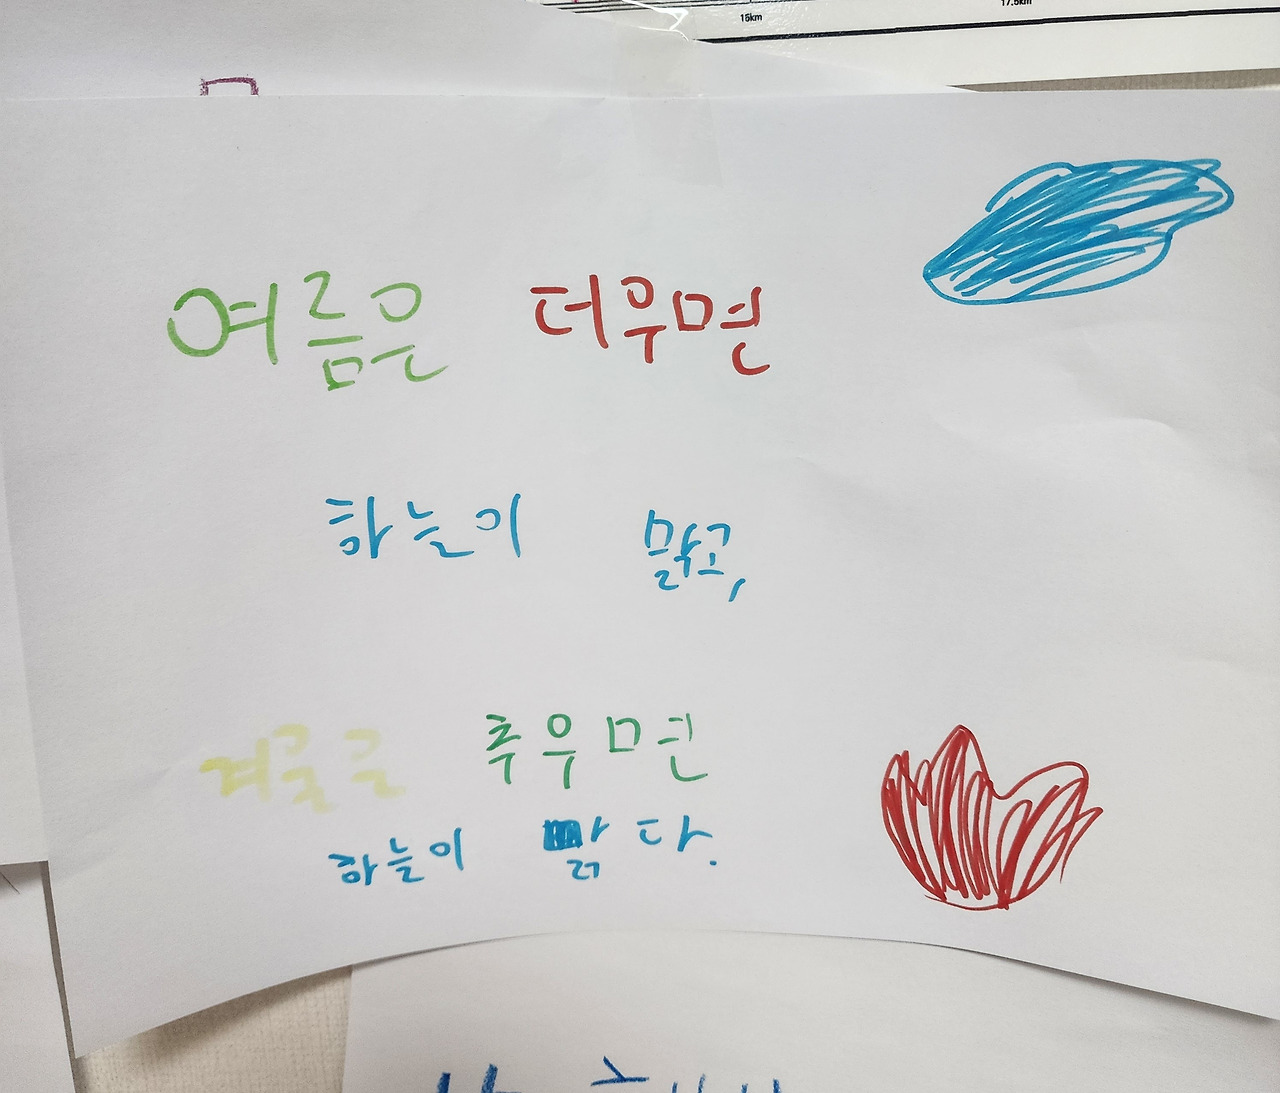 15km 17.5km
여름은 더우면
하늘이 맑고,
겨울은 추우면
하늘이 맑다.